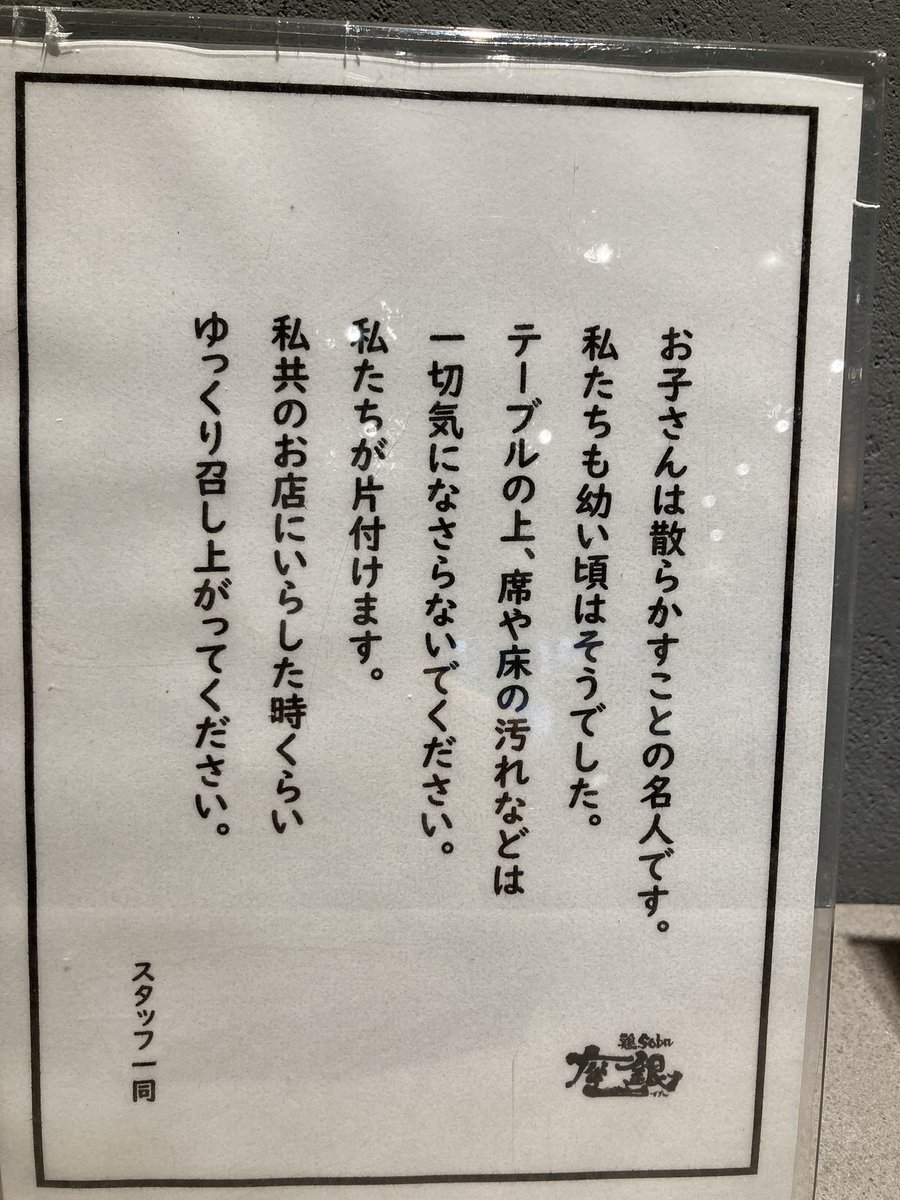 お子さんは散らかすことの名人です。
私たちも幼い頃はそうでした。
テーブルの上、席や床の汚れなどは
一切気になさらないでください。
私たちが片付けます。
私共のお店にいらした時くらい
ゆっくり召し上がってください。
スタッフ一同
鶏Soba
座銀
ざぎん